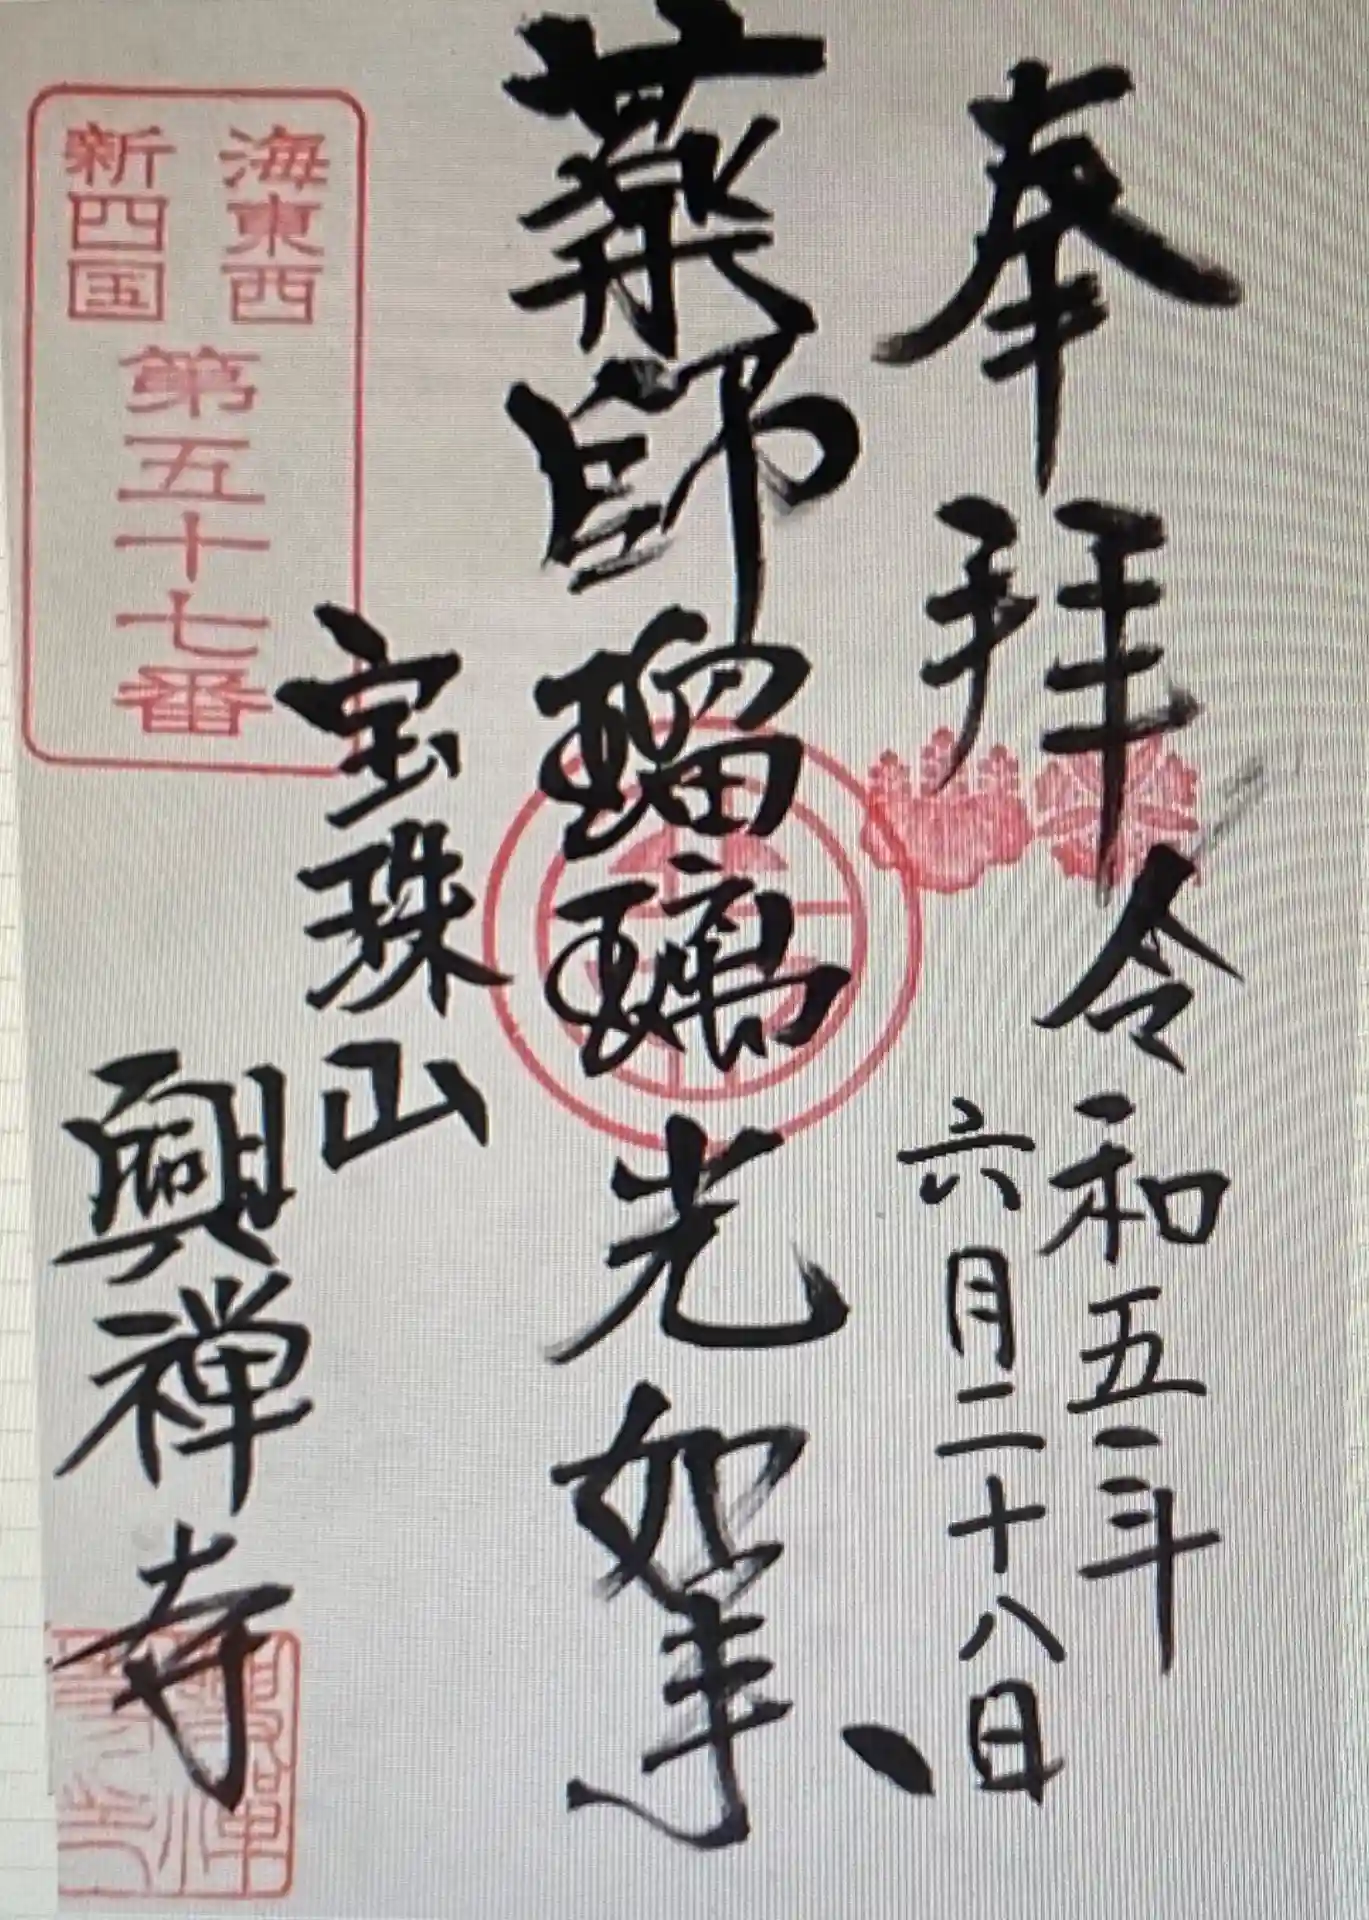 奉拝
令和五年
六月二十八日
薬師瑠璃光如来
宝珠山
興禅寺
海東西
新四国
第五十七番